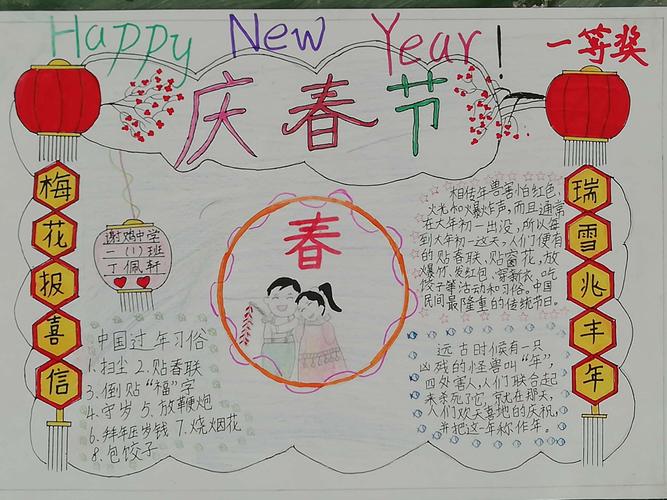 Happy New Year!
一等奖
庆春节
梅花报喜信
谢鸡中学
一(1)班
丁佩轩
春
相传年兽害怕红色,
火光和爆炸声,而且通常
在大年初一出没,所以每
到大年初一这天,人们便有
的贴春联,贴窗花,放
爆竹、发红包、穿新衣、吃
饺子等活动和习俗。中国
民间最隆重的传统节日。
瑞雪兆丰年
中国过年习俗
1.扫尘 2.贴春联
3.倒贴“福”字
4.守岁 5.放鞭炮
6.拜年压岁钱 7.烧烟花
8.包饺子
远古时候有一只
凶残的怪兽叫“年”,
四处害人,人们联合起
来杀死了它,就在那天,
人们欢天喜地的庆祝,
并把这一年称作年。